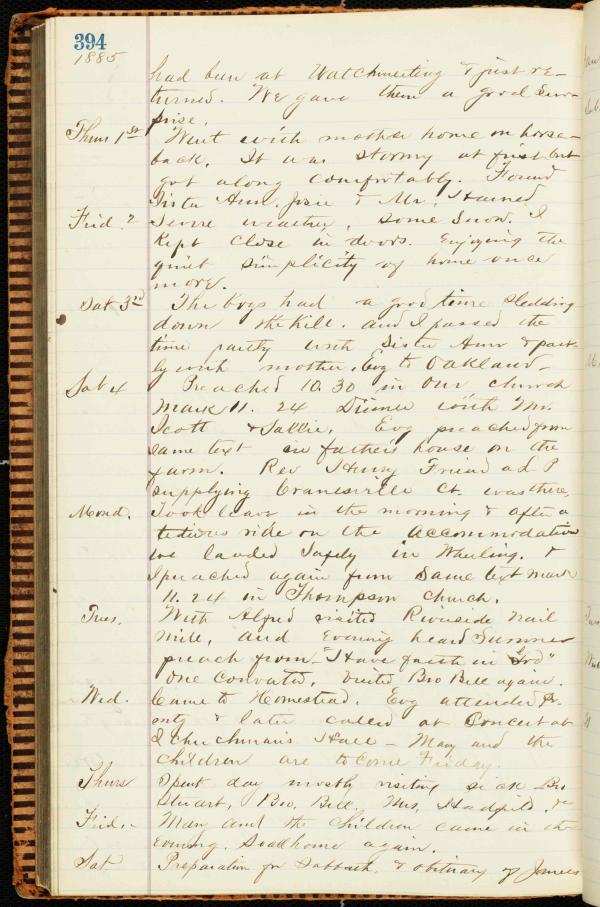 394
1885
had been at Watchmeeting & just re-
turned. We gave them a good Sur-
prise.
Thurs 1st Went with mother home on horse-
back. It was stormy at first but
got along comfortably. Found
Sister Ann. Josie & Mr.
Frid. 2 Severe weather, some snow. I
Kept close in doors. Enjoying the
quiet simplicity of home once
more.
Sat 3rd The boys had a good time sledding
down the hill. and I passed the
time partly with Sister Ann & part-
ly with mother. Evg to Oakland-
Sab 4 Preached 10.30 in our church
Mark 11. 24 Dinner with Mr.
Scott & Sallie. Evg preached from
same text in father's house on the
farm. Rev Henry Friend a L P
supplying Cranesville Ct. was there.
Mond. Took leave in the morning & after a
tedious ride on the accommodation
we landed safely in Wheeling. &
I preached again from same text Mark
11. 24 in Thompson church.
Tues. With Alfred visited Riverside Nail
Mill, and Evening heard Sumner
preach from "Have faith in God"
One converted. Visited Bro Bell again.
Wed. Came to Homestead. Evg attended
& later called at Concert at
Schuchman's Hall - May and the
children are to come Friday.
Thurs Spent day mostly visiting sick Bro
Stuart, Bro. Bell, Mrs. &c
Frid. - Mary and the children came in the
evening. So all home again.
Sat. Preparation for Sabbath. & obituary of James